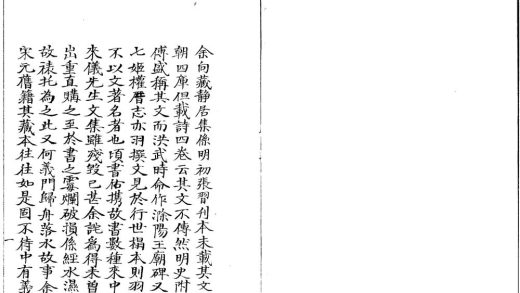 余向藏靜居集係明初張習刊本未載其文
朝四庫但載詩四卷云其文不傳然明史附
傳盛稱其文而洪武時命作滁陽王廟碑又
七姬權厝志亦羽撰文見於行世搨本則羽
不以文著名者也頃書估攜故書數種來中
來儀先生文集雖殘毀已甚余詫為得未曾
出重直購之至於書之霉爛破損係經水濕
故裱托為之此又何義門歸舟落水故事余
宋元舊籍其藏本往往如是固不待中有義
一